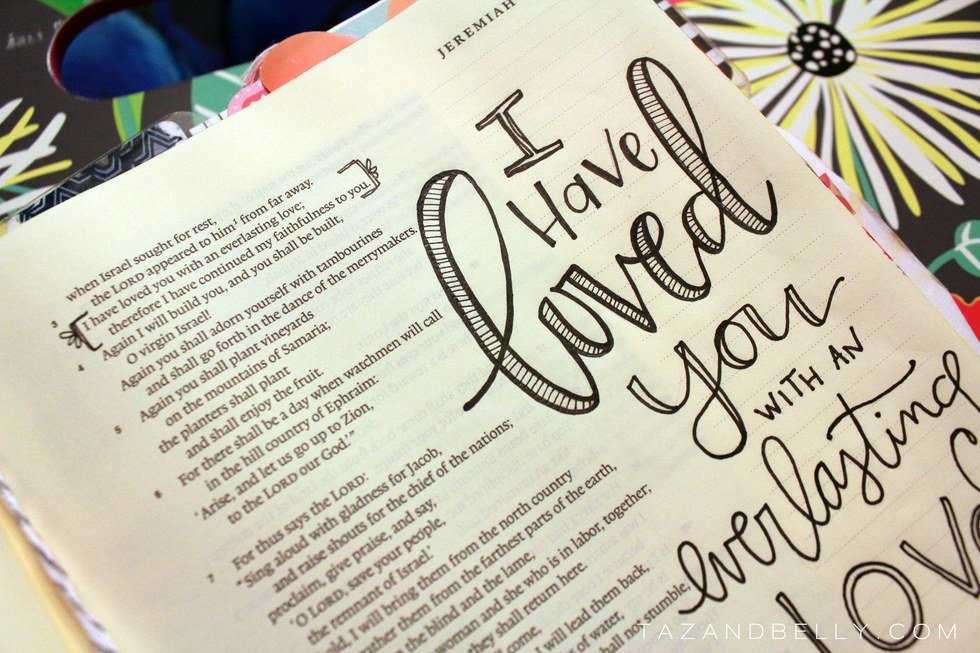 JEREMIAH
when Israel sought for rest,
the LORD appeared to him¹ from far away.
3 I have loved you with an everlasting love;
therefore I have continued my faithfulness to you.
4 Again I will build you, and you shall be built,
O virgin Israel!
Again you shall adorn yourself with tambourines
and shall go forth in the dance of the merrymakers.
5 Again you shall plant vineyards
on the mountains of Samaria;
the planters shall plant
and shall enjoy the fruit.
6 For there shall be a day when watchmen will call
in the hill country of Ephraim:
'Arise, and let us go up to Zion,
to the LORD our God.'"
7 For thus says the LORD:
"Sing aloud with gladness for Jacob,
and raise shouts for the chief of the nations;
proclaim, give praise, and say,
'O LORD, save your people,
the remnant of Israel.'
I will bring them from the north country
them from the farthest parts of the earth,
the blind and the lame,
woman and she who is in labor, together;
they shall return here.
come,
I will lead them back,
of water,
shall not stumble,
I
Have
loved
you
WITH AN
everlasting
LOVE
TAZANDBELLY.COM